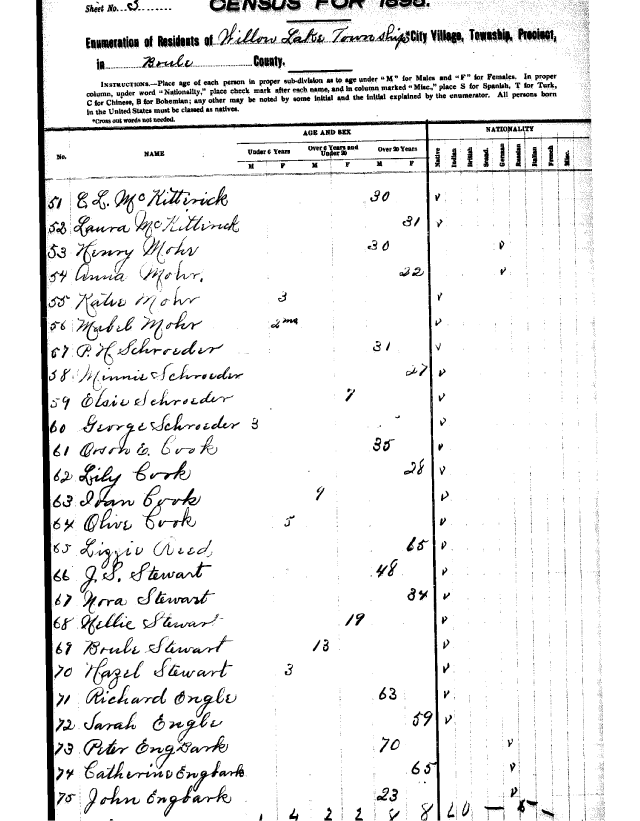 Sheet No. 3
CENSUS FOR 1895.
Enumeration of Residents of Willow Lake Township City Village, Township, Precinct,
in Boule County.
INSTRUCTIONS.—Place age of each person in proper sub-division as to age under "M" for Males and "F" for Females. In proper
column, under word "Nationality," place check mark after each name, and in column marked "Misc.," place S for Spanish, T for Turk,
C for Chinese, B for Bohemian; any other may be noted by some initial and the initial explained by the enumerator. All persons born
in the United States must be classed as natives.
*Cross out words not needed.
AGE AND SEX NATIONALITY
No. NAME Under 6 Years Over 6 Years and Under 20 Over 20 Years Native Indian British Scand. German Russian Italian French Misc.
M F M F M F
51 E. L. McKittirick 30 v
52 Laura McKittirick 31 v
53 Henry Mohr 30 v
54 Anna Mohr. 22 v
55 Katie Mohr 3 v
56 Mabel Mohr 2 mo v
57 P. H Schroeder 31 v
58 Minnie Schroeder 27 v
59 Elsie Schroeder 7 v
60 George Schroeder 3 v
61 Orson E. Cook 35 v
62 Lily Cook 28 v
63 Ivan Cook 9 v
64 Olive Cook 5 v
65 Lizzie Reed 65 v
66 J. S. Stewart 48 v
67 Nora Stewart 34 v
68 Nellie Stewart 19 v
69 Boule Stewart 13 v
70 Hazel Stewart 3 v
71 Richard Engle 63 v
72 Sarah Engle 59 v
73 Peter Engbark 70 v
74 Catherine Engbark 65 v
75 John Engbark 23 v
1 4 2 2 8 8 20 — 5 —